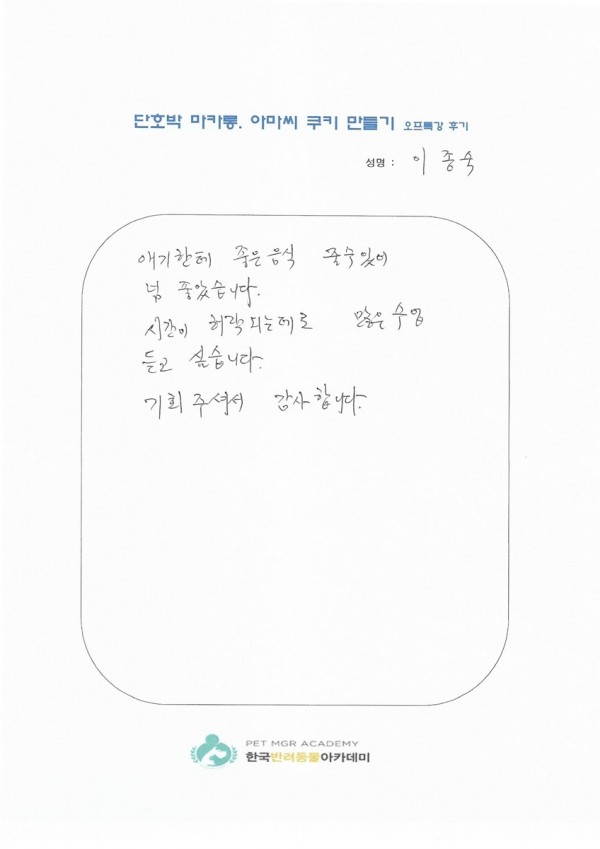 단호박 마카롱. 아마씨 쿠키 만들기 오프특강 후기
성명 : 이종숙
애기한테 좋은음식 줄수있어
넘 좋았습니다.
시간이 허락되는데로 많은수업
듣고 싶습니다.
기회주셔서 감사합니다.
PET MGR ACADEMY
한국반려동물아카데미